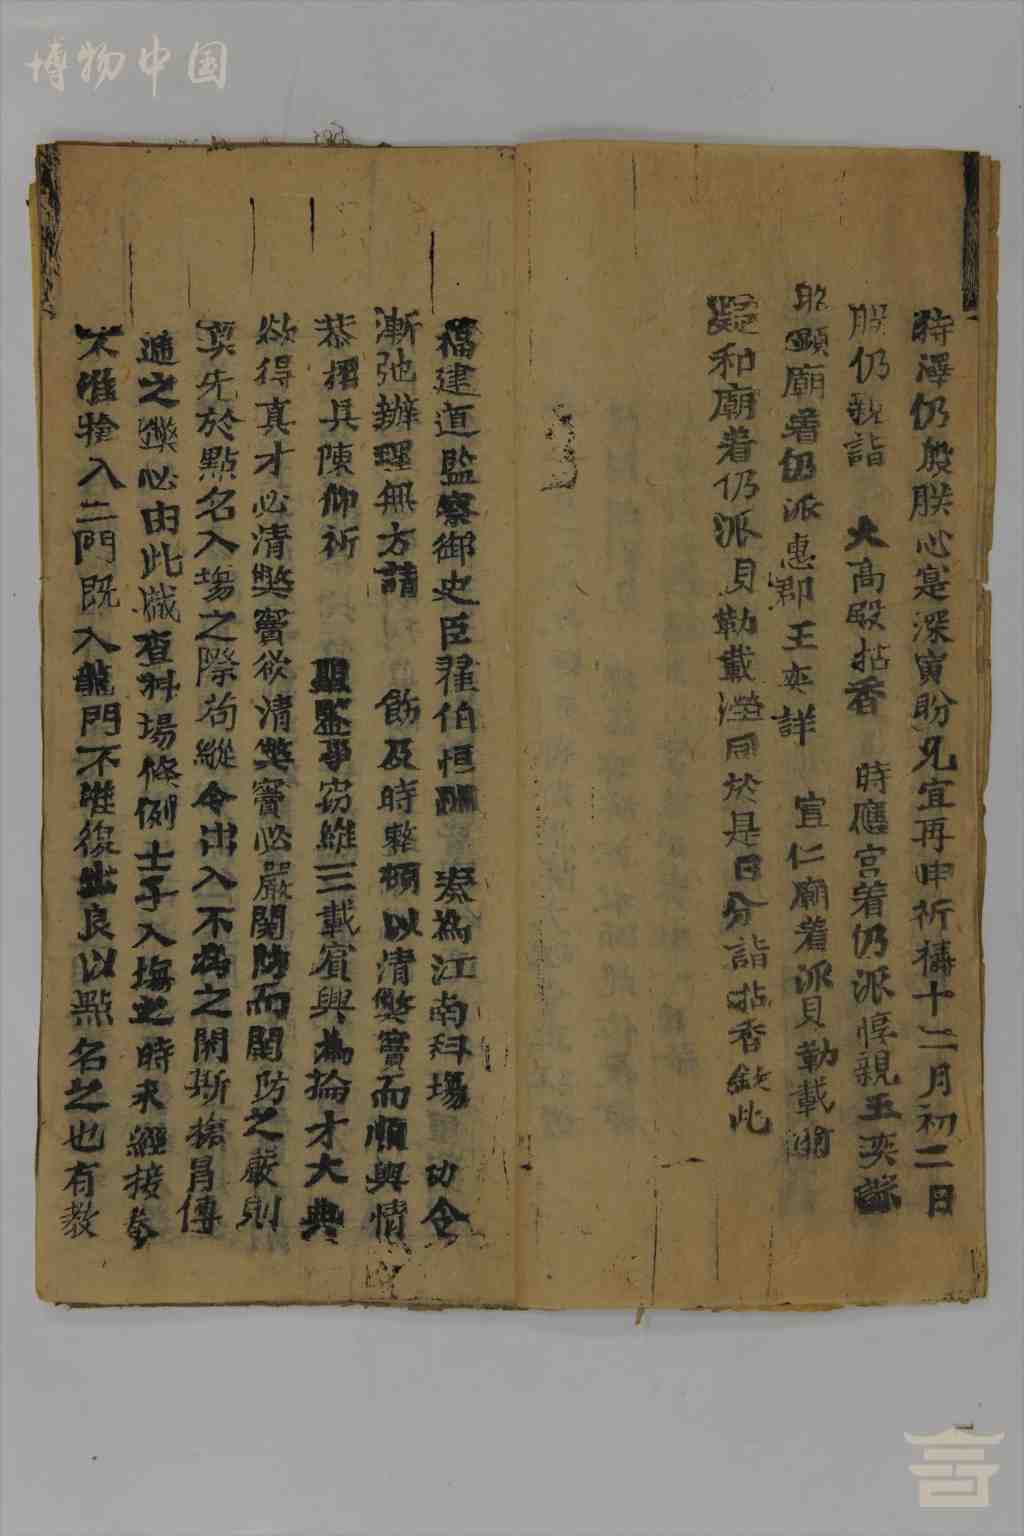 博物中国
時澤仍殷朕心寔深寅盼允宜再申祈禱十二月初二日
朕仍親詣 大高殿拈香 時應宮着仍派惇親王奕誴
昭顯廟着仍派惠郡王奕詳 宣仁廟着派貝勒載澍
凝和廟着仍派貝勒載瀅同於是日分詣拈香欽此
福建道監察御史臣翟伯恒跪奏為江南科塲 功令
漸弛辦理無方請 飭及時整頓以清弊竇而順輿情
恭摺具陳仰祈 聖鑒事窃維三載賓興為掄才大典
欲得真才必清弊竇欲清弊竇必嚴関防而関防之嚴則
莫先於點名入塲之際苟縱令出入不為之閑斯搶冒傳
遞之弊必由此滋查科場條例士子入塲之時未經接卷
不准搶入二門既入龍門不准復出良以點名之也有教